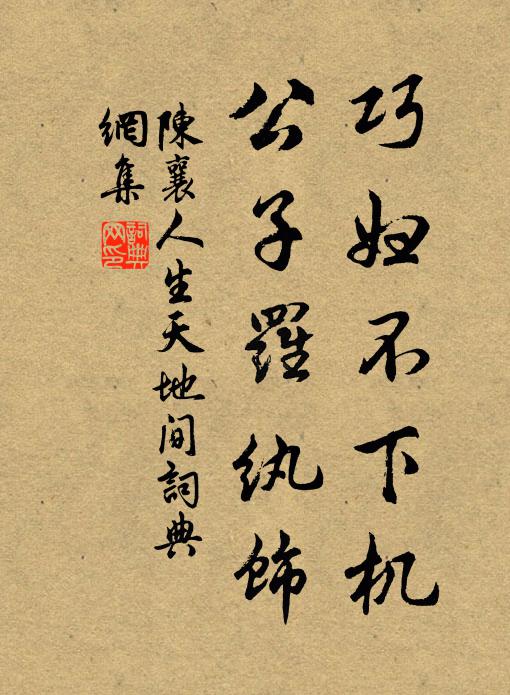 巧妇不下机
公子羅紈飾
陳襄人生天地间詞典
網集
詞典
网印